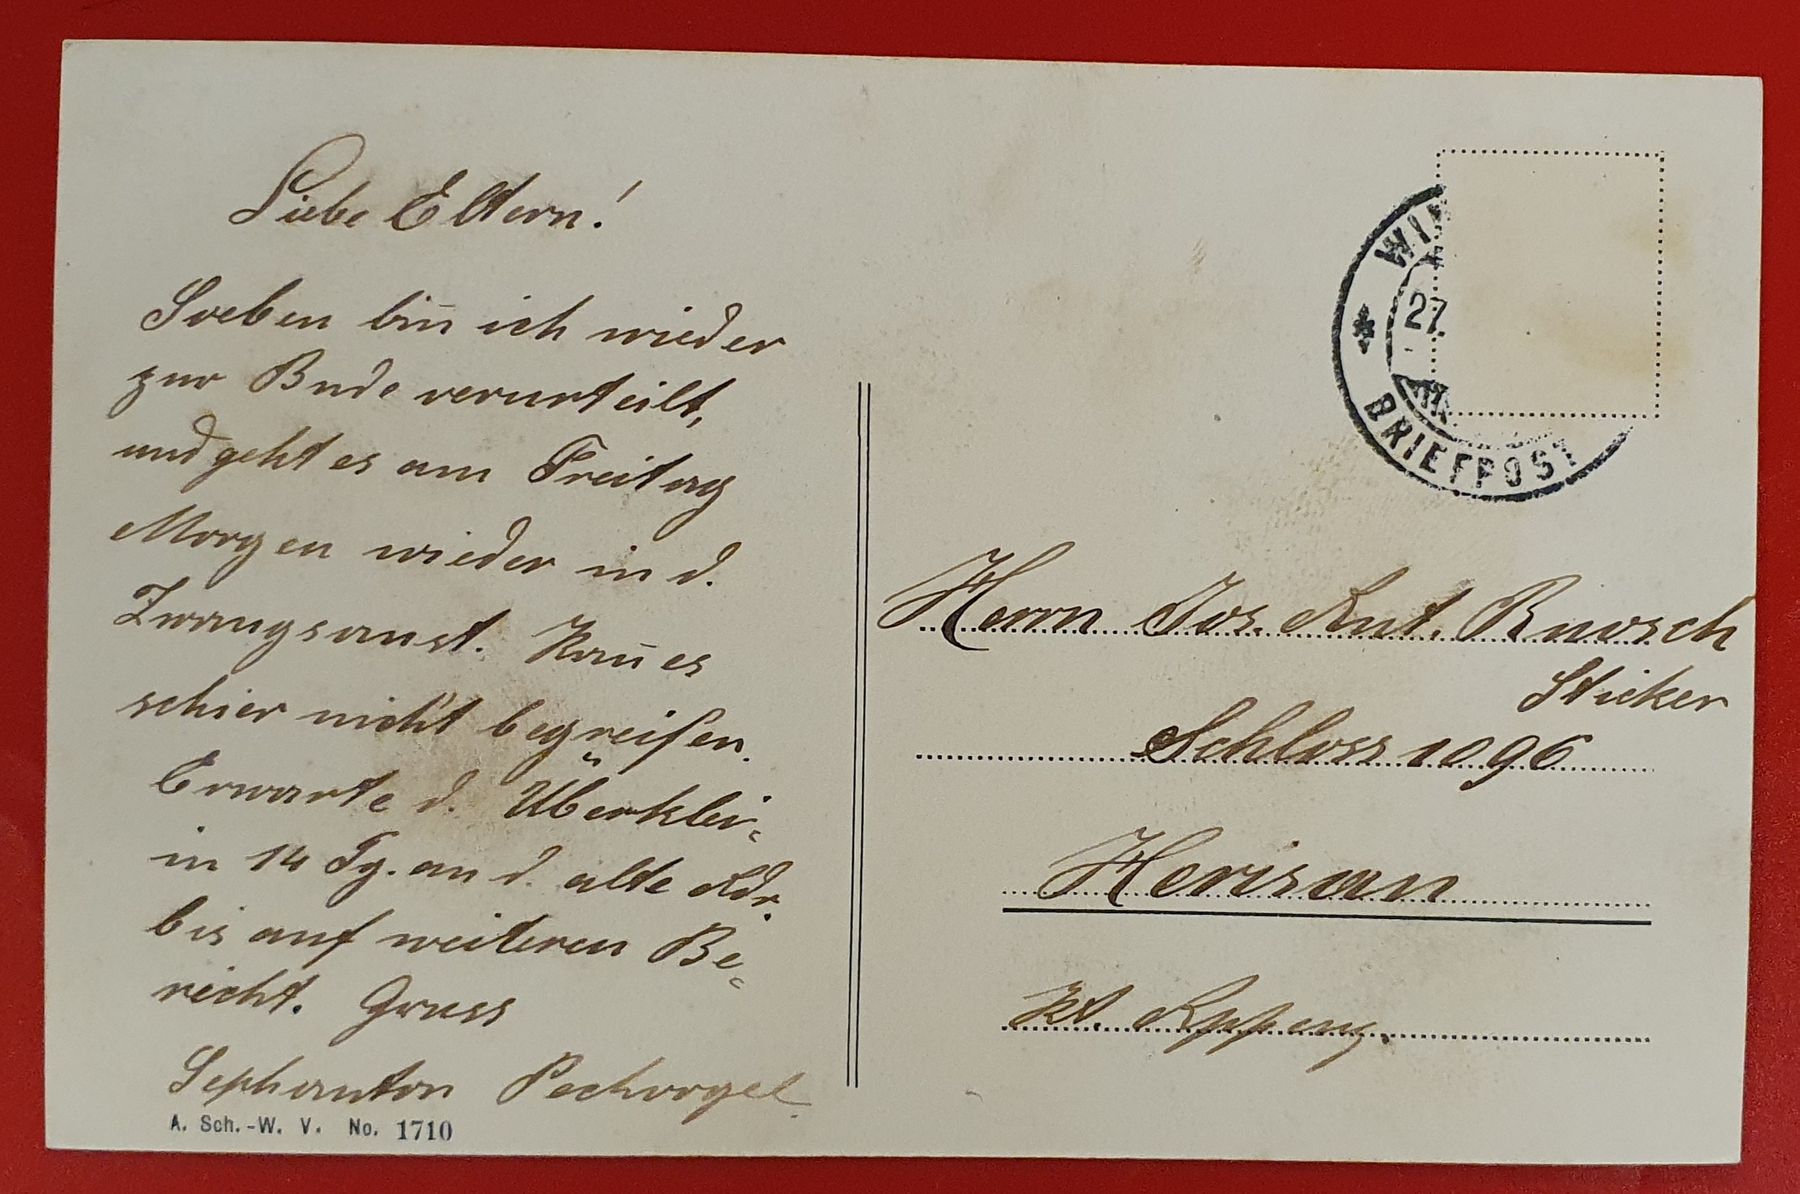 Liebe Eltern!
Soeben biñ ich wieder
zur Bude verurteilt,
und geht es am Freitag
Morgen wieder in d.
Zwangsanst. Kañ es
schier nicht begreifen.
Erwarte d. Überklei-
in 14 Tg. an d. alte Adr.
bis auf weiteren Be-
richt. Gruss
Sephanton Pechvogel
A. Sch.-W. V. No. 1710
WIN
27.
BRIEFPOST
Herrn Jos. Ant. Rusch
Sticker
Schloss 1096
Herisau
Kt. Appenz.